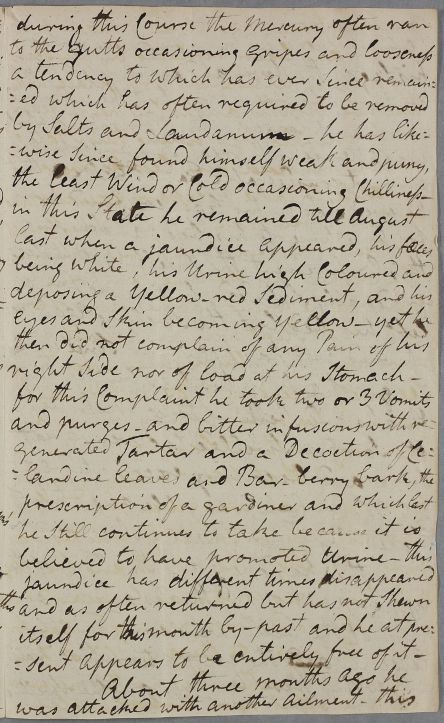 during this Course the Mercury often ran
to the Gutts occasioning gripes and looseness
a tendency to which has ever since remain=
=ed which has often required to be removed
by Salts and Laudanum - he has like=
=wise since found himself weak and puny,
the least Wind or Cold occasioning Chilliness -
in this State he remained till August
last when a jaundice appeared, his fæces
being white, his Urine high Coloured and
deposing a Yellow-red Sediment, and his
eyes and Skin becoming yellow - yet he
then did not complain of any Pain of his
right Side nor of load at his Stomach -
for this Complaint he took two or 3 Vomits
and purges - and bitter infusions with re=
generated Tartar and a Decoction of Ce=
=landine leaves and Bar-berry bark, the
prescription of a gardiner and which last
he Still continues to take because it is
believed to have promoted Urine - this
jaundice has different times disappeared
and as often returned but has not Shewn
itself for this month by-past and he at pre=
=sent appears to be entirely free of it -
About three months ago he
was attacked with another Ailment - this